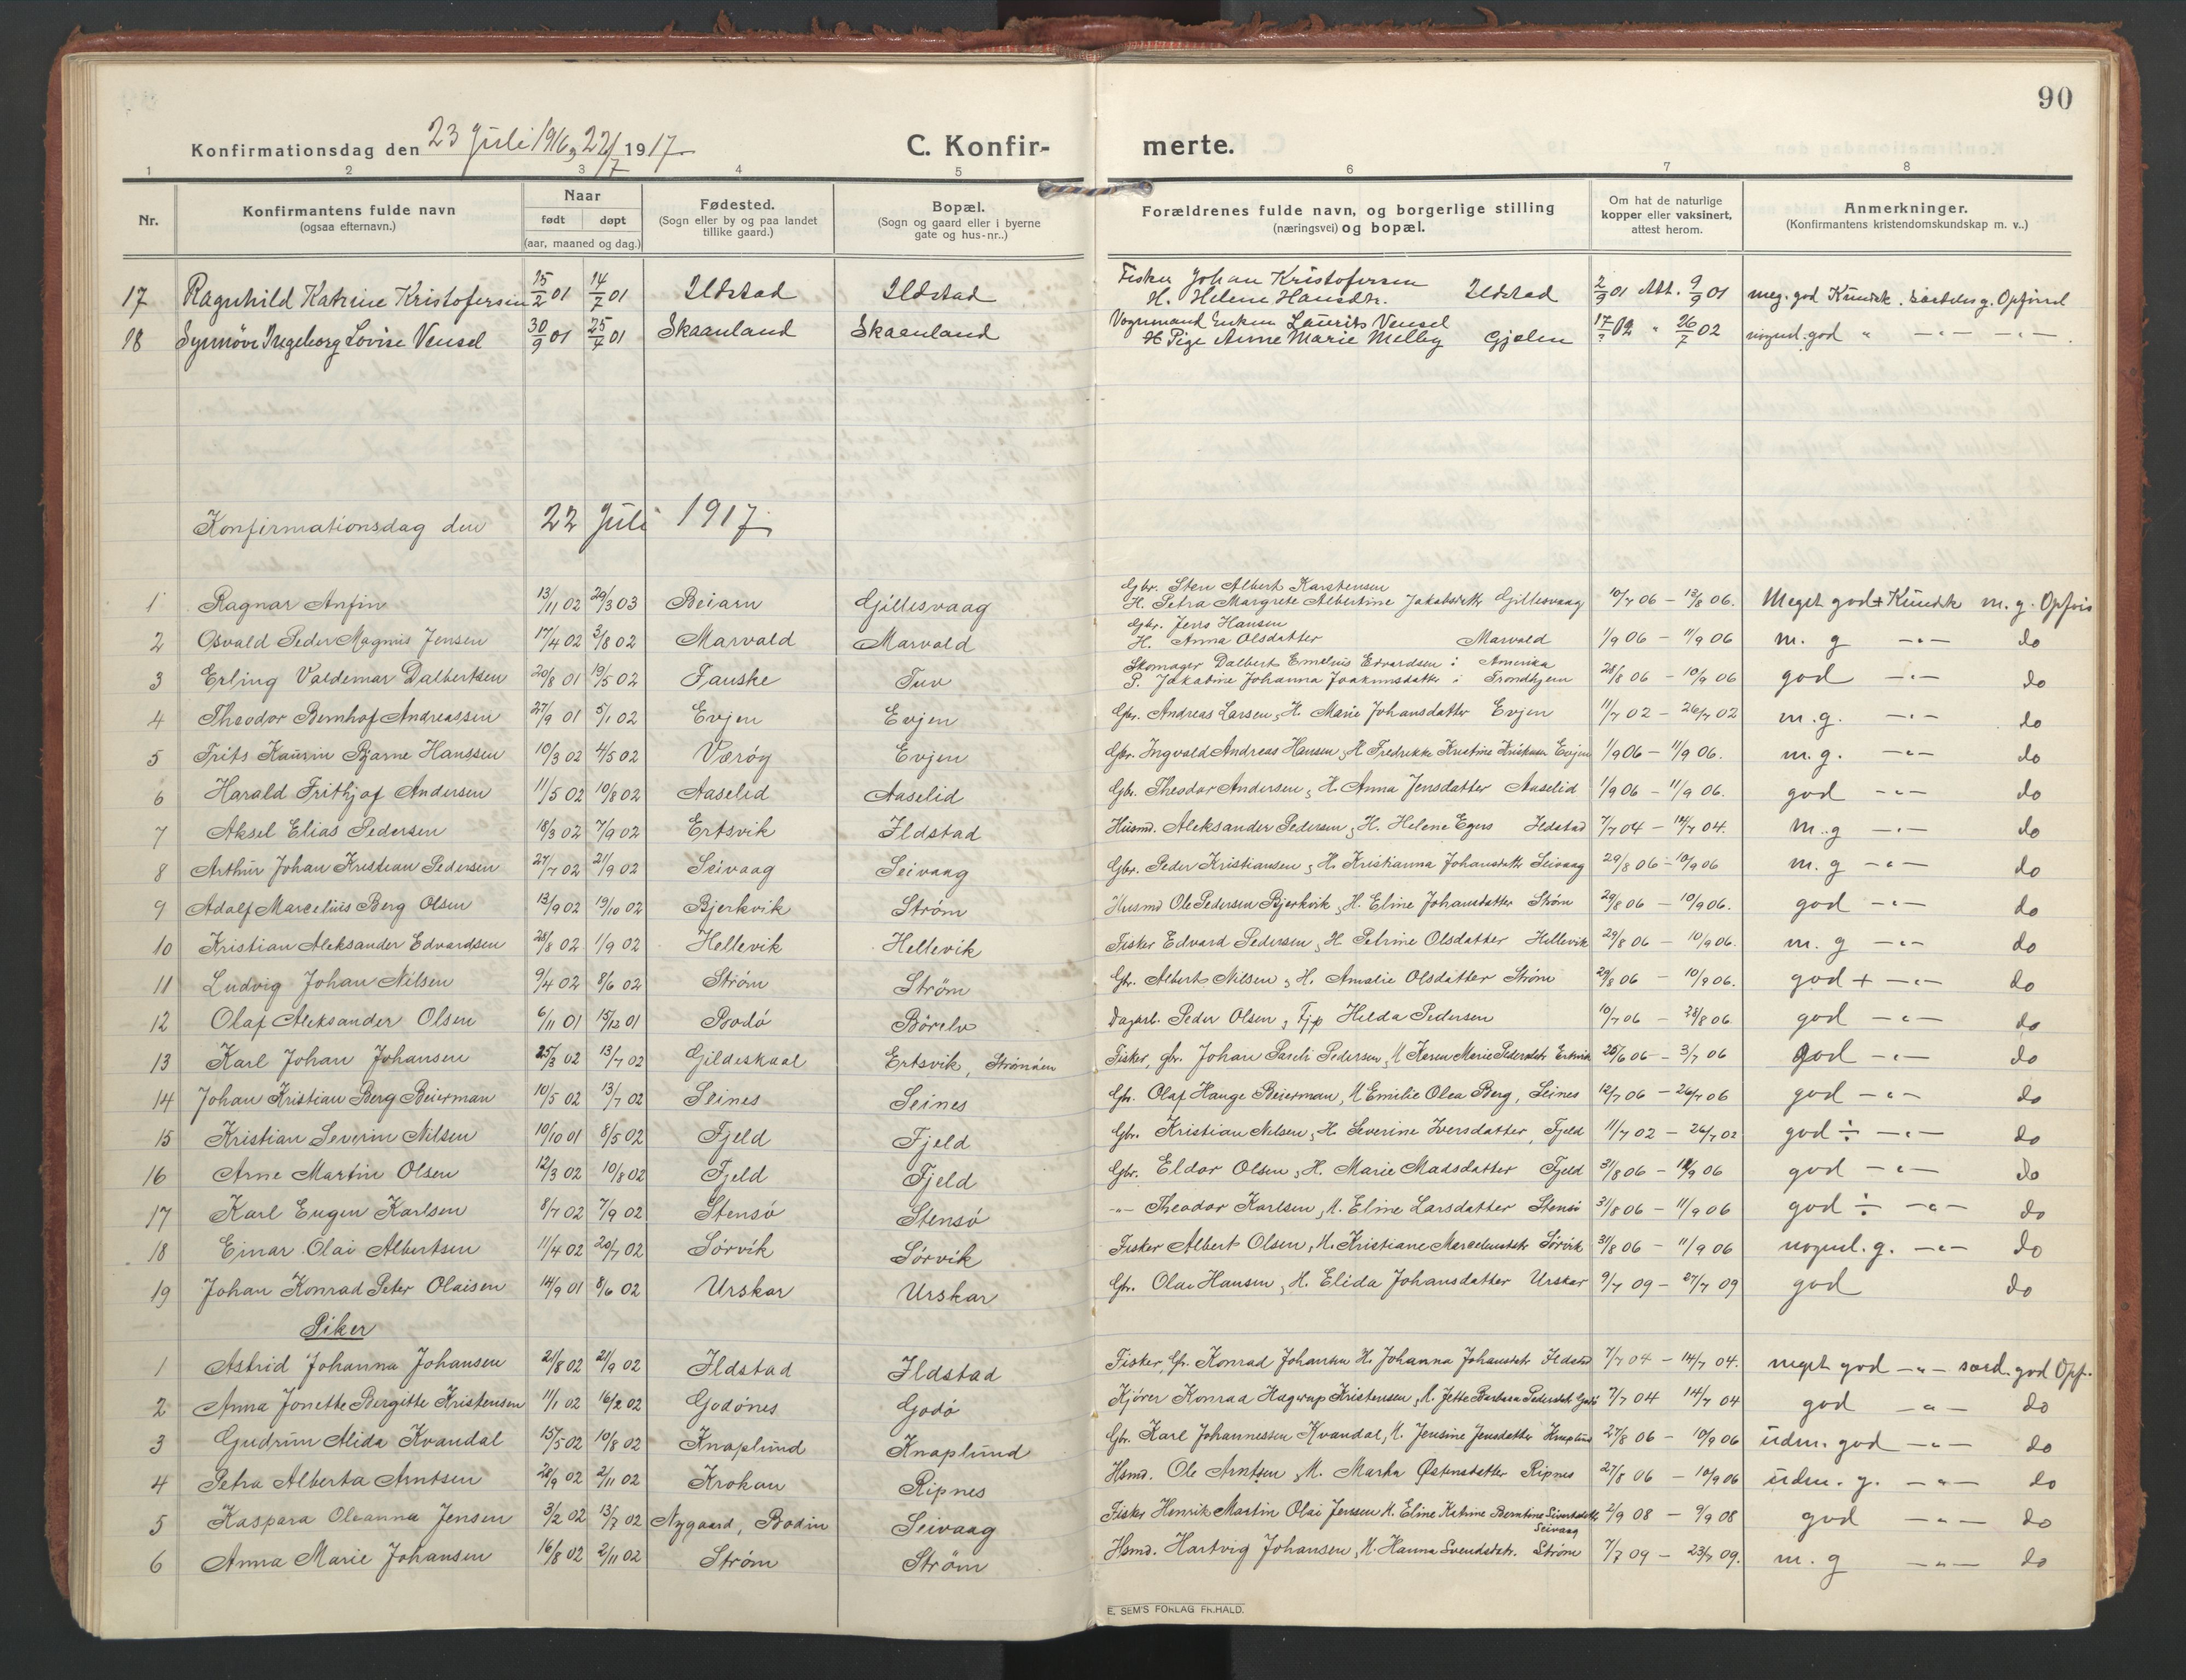 90
Konfirmationsdag den 23 Juli 1916, 22/7 1917
C. Konfir- merte.
1 2 3 4 5 6 7 8
Nr.
Konfirmantens fulde navn
(ogsaa efternavn.)
Naar
født døpt
(aar, maaned og dag.)
Fødested.
(Sogn eller by og paa landet
tillike gaard.)
Bopæl.
(Sogn og gaard eller i byerne
gate og hus-nr..)
Forældrenes fulde navn, og borgerlige stilling
(næringsvei) og bopæl.
Om hat de naturlige
kopper eller vaksinert,
attest herom.
Anmerkninger.
(Konfirmantens kristendomskundskap m. v..)
Fisker Johan Kristofersen
17 Ragnhild Katrine Kristofersen 15/2 01 14/7 01 Ildstad Ildstad H. Helene Hansdtr. Ildstad 2/9 01 Att. 9/9 01 meg. god Kundsk. særdeles g. Opførsel
Vogumand Enkem Laurits Vensel
18 Synnøve Ingeborg Lovise Vensel 30/9 01 25/7 01 Skaanland Skaanland Pige Anne Marie Melby Gjølen 17/7 02 " 26/7 02 nogenl. god " -"- -"-
Konfirmationsdag den 22 Juli 1917.
Gbr. Sten Albert Karstensen
1 Ragnar Anfin 13/11 02 29/3 03 Beiarn Gillesvaag H. Petra Margrete Albertine Jakobsdatter Gillesvaag 10/7 06 - 13/8 06. Meget god+ Kundsk m. g. Opførs
Gbr. Jens Hansen
2 Osvald Peder Magnus Jensen 17/4 02 3/8 02 Marvold Marvold H. Anna Olsdatter Marvold 1/9 06 - 11/9 06 m. g -"- do
Skomager Dalbert Emelius Edvardsen i Amerika
3 Erling Valdemar Dalbertsen 20/8 01 19/5 02 Fauske Tuv P. Jakobine Johanna Joakimsdatter i Trondhjem 28/8 06 - 10/9 06 god -"- do
4 Theodor Bernhof Andreassen 27/9 01 5/1 02 Evjen Evjen Gbr. Andreas Larsen, H. Marie Johansdatter Evjen 11/7 02 - 26/7 02 m. g. -"- do
5 Frits Kaurin Bjarne Hanssen 10/3 02 4/5 02 Værøy Evjen Gbr. Ingvald Andreas Hansen, H. Fredrikke Kristine Evjen 1/9 06 - 11/9 06. m. g. -"- do
6 Harald Frithjof Andersen 11/5 02 10/8 02 Aaselid Aaselid Gbr. Theodor Andersen, H. Anna Jensdatter Aaselid 1/9 06 - 11/9 06. god -"- do
7 Aksel Elias Pedersen 18/3 02 7/9 02 Ertsvik Ildstad Husmd. Aleksander Pedersen, H. Helene Egers Ildstad 7/7 04 - 14/7 04. m. g -"- do
8 Arthur Johan Kristian Pedersen 27/7 02 21/9 02 Seivaag Seivaag Gbr. Peder Kristiansen, H. Kristianna Johansdatt Seivaag 29/8 06 - 10/9 06 m. g -"- do
9 Adolf Marcelius Berg Olsen 13/9 02 19/10 02 Bjerkvik Strøm Husmd Ole Pedersen Bjerkvik, H. Eline Johansdatter Strøm 29/8 06 - 10/9 06. god -"- do
10 Kristian Aleksander Edvardsen 28/8 02 1/9 02 Hellevik Hellevik Fisker Edvard Pedersen, H. Petrine Olsdatter Hellevik 29/8 06 - 10/9 06. m. g -"- do
11 Ludvig Johan Nilsen 9/4 02 8/6 02 Strøm Strøm Gbr. Albert Nilsen, H. Amalie Olsdatter Strøm 29/8 06 - 10/9 06. god + -"- do
12 Olaf Aleksander Olsen 6/11 01 15/12 01 Bodó Börelv Dagarb. Peder Olsen, Fjp Hilda Pedersen 10/7 06 - 28/8 06. god -"- do
13 Karl Johan Johansen 25/3 02 13/7 02 Gildeskaal Ertsvik, Strømøen Fisker, gbr. Johan Pareli Pedersen, H Karen Marie Pedersdtr Ertsvik 25/6 06 - 3/7 06 god -"- do
14 Johan Kristian Berg Beierman 10/5 02 13/7 02 Seines Seines Gbr. Olaf Hauge Beierman, H Emilie Olea Berg, Seines 12/7 06 - 26/7 06 god -"- do
15 Kristian Severin Nilsen 10/10 01 8/5 02 Fjeld Fjeld Gbr. Kristian Nilsen, H. Severine Iversdatter, Fjeld 11/7 02 - 26/7 02 god ÷ -"- do
16 Arne Martin Olsen 12/3 02 10/8 02 Fjeld Fjeld Gbr. Eldor Olsen, H. Marie Madsdatter Fjeld 31/8 06 - 11/9 06 god -"- do
17 Karl Eugen Karlsen 8/7 02 7/9 02 Stensó Stensó -"- Theodor Karlsen, H. Eline Larsdatter Stensó 31/8 06 - 11/9 06 god ÷ -"- do
18 Einar Olai Albertsen 11/4 02 20/7 02 Sórvik Sórvik Fisker Albert Olsen, H. Kristiane Marceliusdtr Sórvik 31/8 06 - 11/9 06 nogenl. g. -"- do
19 Johan Konrad Peter Olaisen 14/9 01 8/6 02 Urskar Urskar Gbr. Olai Hansen, H. Elida Johansdatter Urskar 9/7 09 - 27/7 09 god do
Piker
1 Astrid Johanna Johansen 21/8 02 21/9 02 Ildstad Ildstad Fisker, Gbr. Konrad Johansen H. Johanna Johansdtr Ildstad 7/7 04 - 14/7 04. meget god -"- særd. god Opf.
2 Anna Jonette Bergitte Kristensen 11/1 02 16/2 02 Godónes Godó Kjører Konrad Hagerup Kristensen, H. Jette Barbara Pedersdtr Godó 7/7 04 14/7 04 god -"- do
3 Gudrun Alida Kvandal 15/5 02 10/8 02 Knaplund Knaplund Gbr. Karl Johannessen Kvandal, H. Jensine Jensdatter Knaplund 27/8 06 - 10/9 06 udm. god -"- do
4 Petra Alberta Arntsen 28/9 02 2/11 02 Krokan Ripnes Hsmd. Ole Arntsen, H. Marta Østensdatter Ripnes 27/8 06 - 10/9 06 udm. g. -"- do
5 Kaspara Oleanna Jensen 3/2 02 13/7 02 Nygaard, Bodin Seivaag Fisker Henrik Martin Olai Jensen H. Eline Katrine Berntine Sivertsdtr 2/9 08 - 9/9 08 god -"- do
Seivaag
6 Anna Marie Johansen 16/8 02 2/11 02 Strøm Strøm Hsmd. Hartvig Johansen, H. Hanna Svendsdtr. Strøm 7/7 09 - 23/7 09. m. g -"- do
E. SEM'S FORLAG FR.HALD.